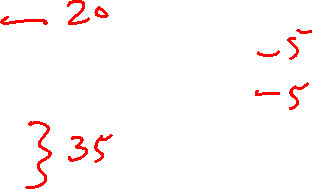 ← 20
-5
-5
} 35